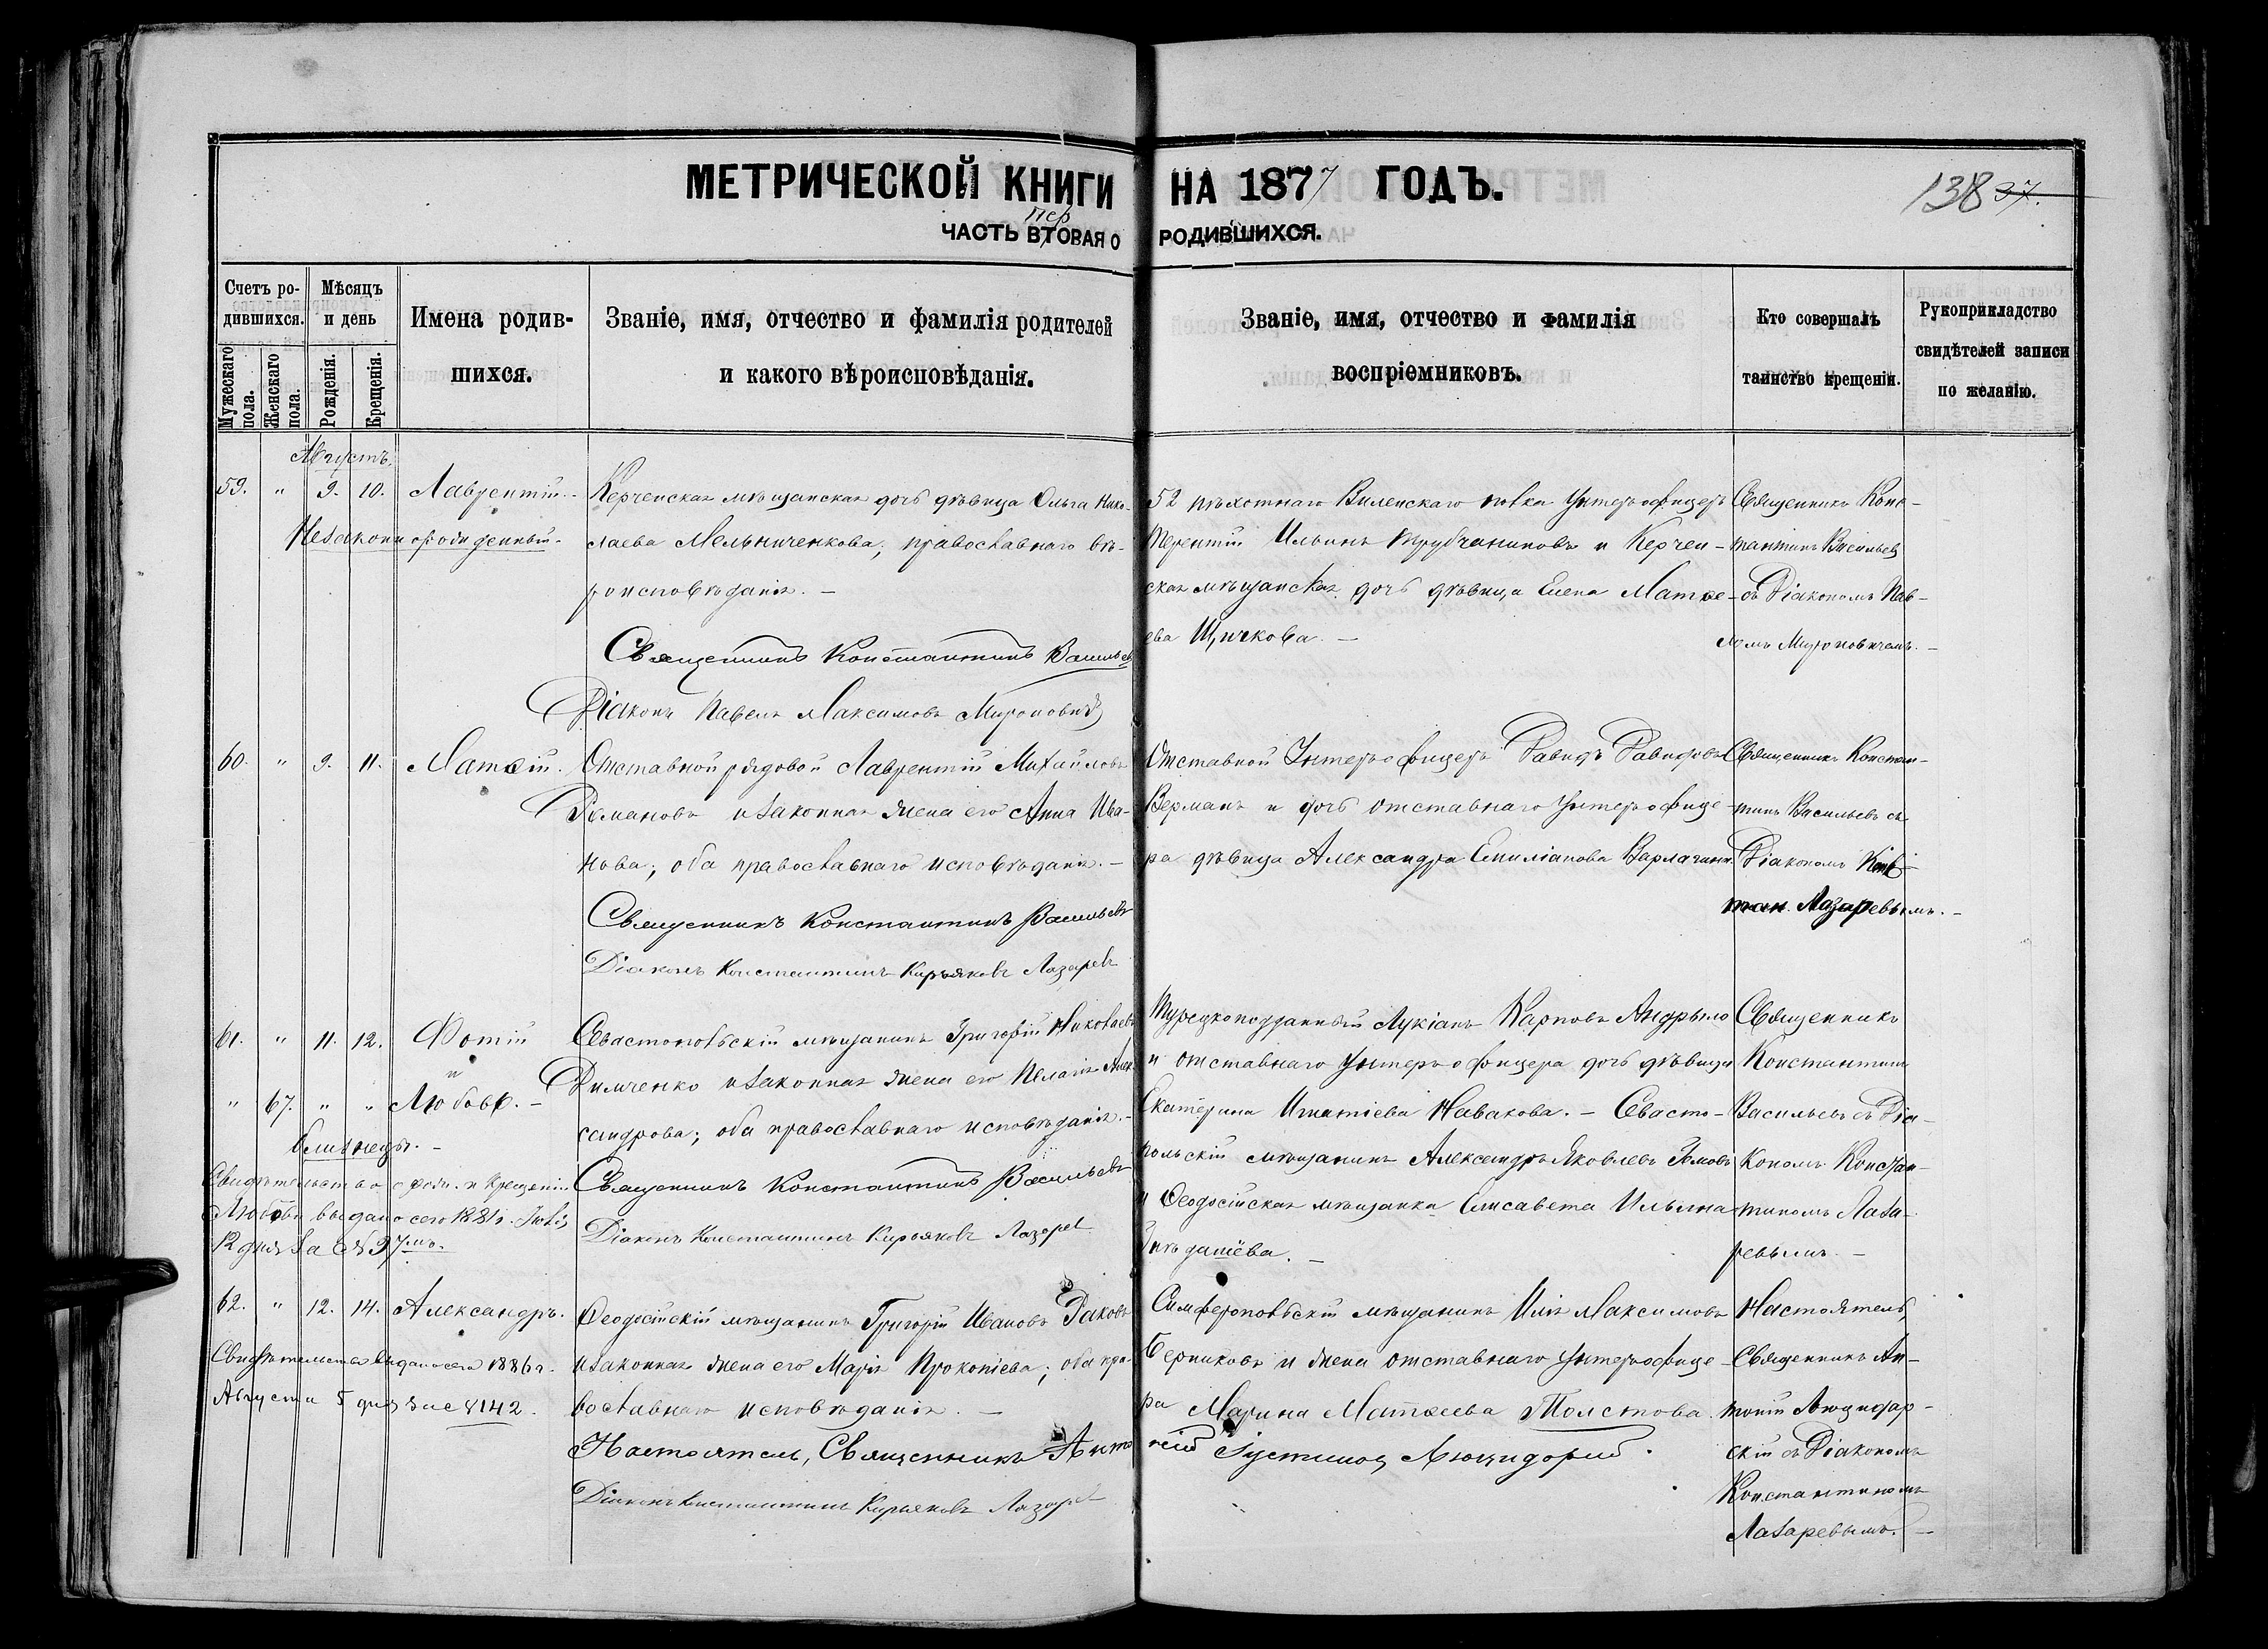 МЕТРИЧЕСКОЙ КНИГИ НА 1877 ГОДЪ.
138 37.
пер
ЧАСТЬ ВТОРАЯ О РОДИВШИХСЯ.
Счетъ родившихся.
Мужескаго пола.
Женскаго пола.
Мѣсяцъ и день
Рожденія.
Крещенія.
Имена родившихся.
Званіе, имя, отчество и фамилія родителей
и какого вѣроисповѣданія.
Званіе, имя, отчество и фамилія
воспріемниковъ.
Кто совершалъ
таинство крещенія.
Рукоприкладство
свидѣтелей записи
по желанію.
Августъ.
59. " 9. 10. Лаврентій.
Незаконнорожденный.
Керченская мѣщанская дочь дѣвица Ольга Нико-
лаева Мельниченкова, православнаго вѣ-
роисповѣданія. –
Священникъ Константинъ Васильевъ
Діаконъ Павелъ Максимовъ Мироновичъ
52 пѣхотнаго Виленскаго полка Унтеръ-офицеръ
Терентій Ильинъ Трубчаниновъ и Керчен-
ская мѣщанская дочь дѣвица Елена Матѳе-
ева Щичкова. –
Священникъ Конс-
тантинъ Васильевъ
съ Діакономъ Пав-
ломъ Мироновичемъ. –
60. " 9. 11. Матѳій.
Отставной рядовой Лаврентій Михайловъ
Романовъ и законная жена его Анна Ива-
нова; оба православнаго исповѣданія. –
Священникъ Константинъ Васильевъ
Діаконъ Константинъ Кирьяковъ Лазаревъ
Отставной Унтеръ-офицеръ Давидъ Давидовъ
Верманъ и дочь отставнаго Унтеръ-офице-
ра дѣвица Александра Емиліанова
Священникъ Констан-
тинъ Васильевъ съ
Діакономъ
Лазаревымъ. –
61. " 11. 12. Фотій
и
" 67. " " Любовь. –
близнецы. –
Свидѣтельство о рожд. и крещеніи
Любови выдано сего 1881 г. Іюля
12 дня за № 37мъ.
Севастопольскій мѣщанинъ Григорій Николаевъ
Димченко и законная жена его Пелагія Алек-
сандрова; оба православнаго исповѣданія. –
Священникъ Константинъ Васильевъ
Діаконъ Константинъ Кирьяковъ Лазаревъ
Турецкоподданный Лукіанъ Карповъ Андрыло
и отставнаго Унтеръ-офицера дочь дѣвица
Екатерина Игнатіева Навакова. – Севасто-
польскій мѣщанинъ Александръ Яковлевъ
и Ѳеодосійская мѣщанка Елисавета Ильина
Священникъ
Константинъ
Васильевъ съ Діа-
кономъ Констан-
тиномъ Лаза-
ревымъ. –
62. " 12. 14. Александръ.
Свидѣтельство выдано сего 1886 г.
Августа 5 дня за № 142.
Ѳеодосійскій мѣщанинъ Григорій Ивановъ Раковъ
и законная жена его Марія Прокопіева; оба пра-
вославнаго исповѣданія. –
Настоятель, Священникъ Анто
ній Іустиновъ Люцидарскій.
Діаконъ Константинъ Кирьяковъ Лазаревъ
Симферопольскій мѣщанинъ Илія Максимовъ
Берниковъ и жена отставнаго Унтеръ-офице-
ра Марина Матѳеева Толстова.
Настоятель,
Священникъ Ан-
тоній Люцидар-
скій съ Діакономъ
Константиномъ
Лазаревымъ. –